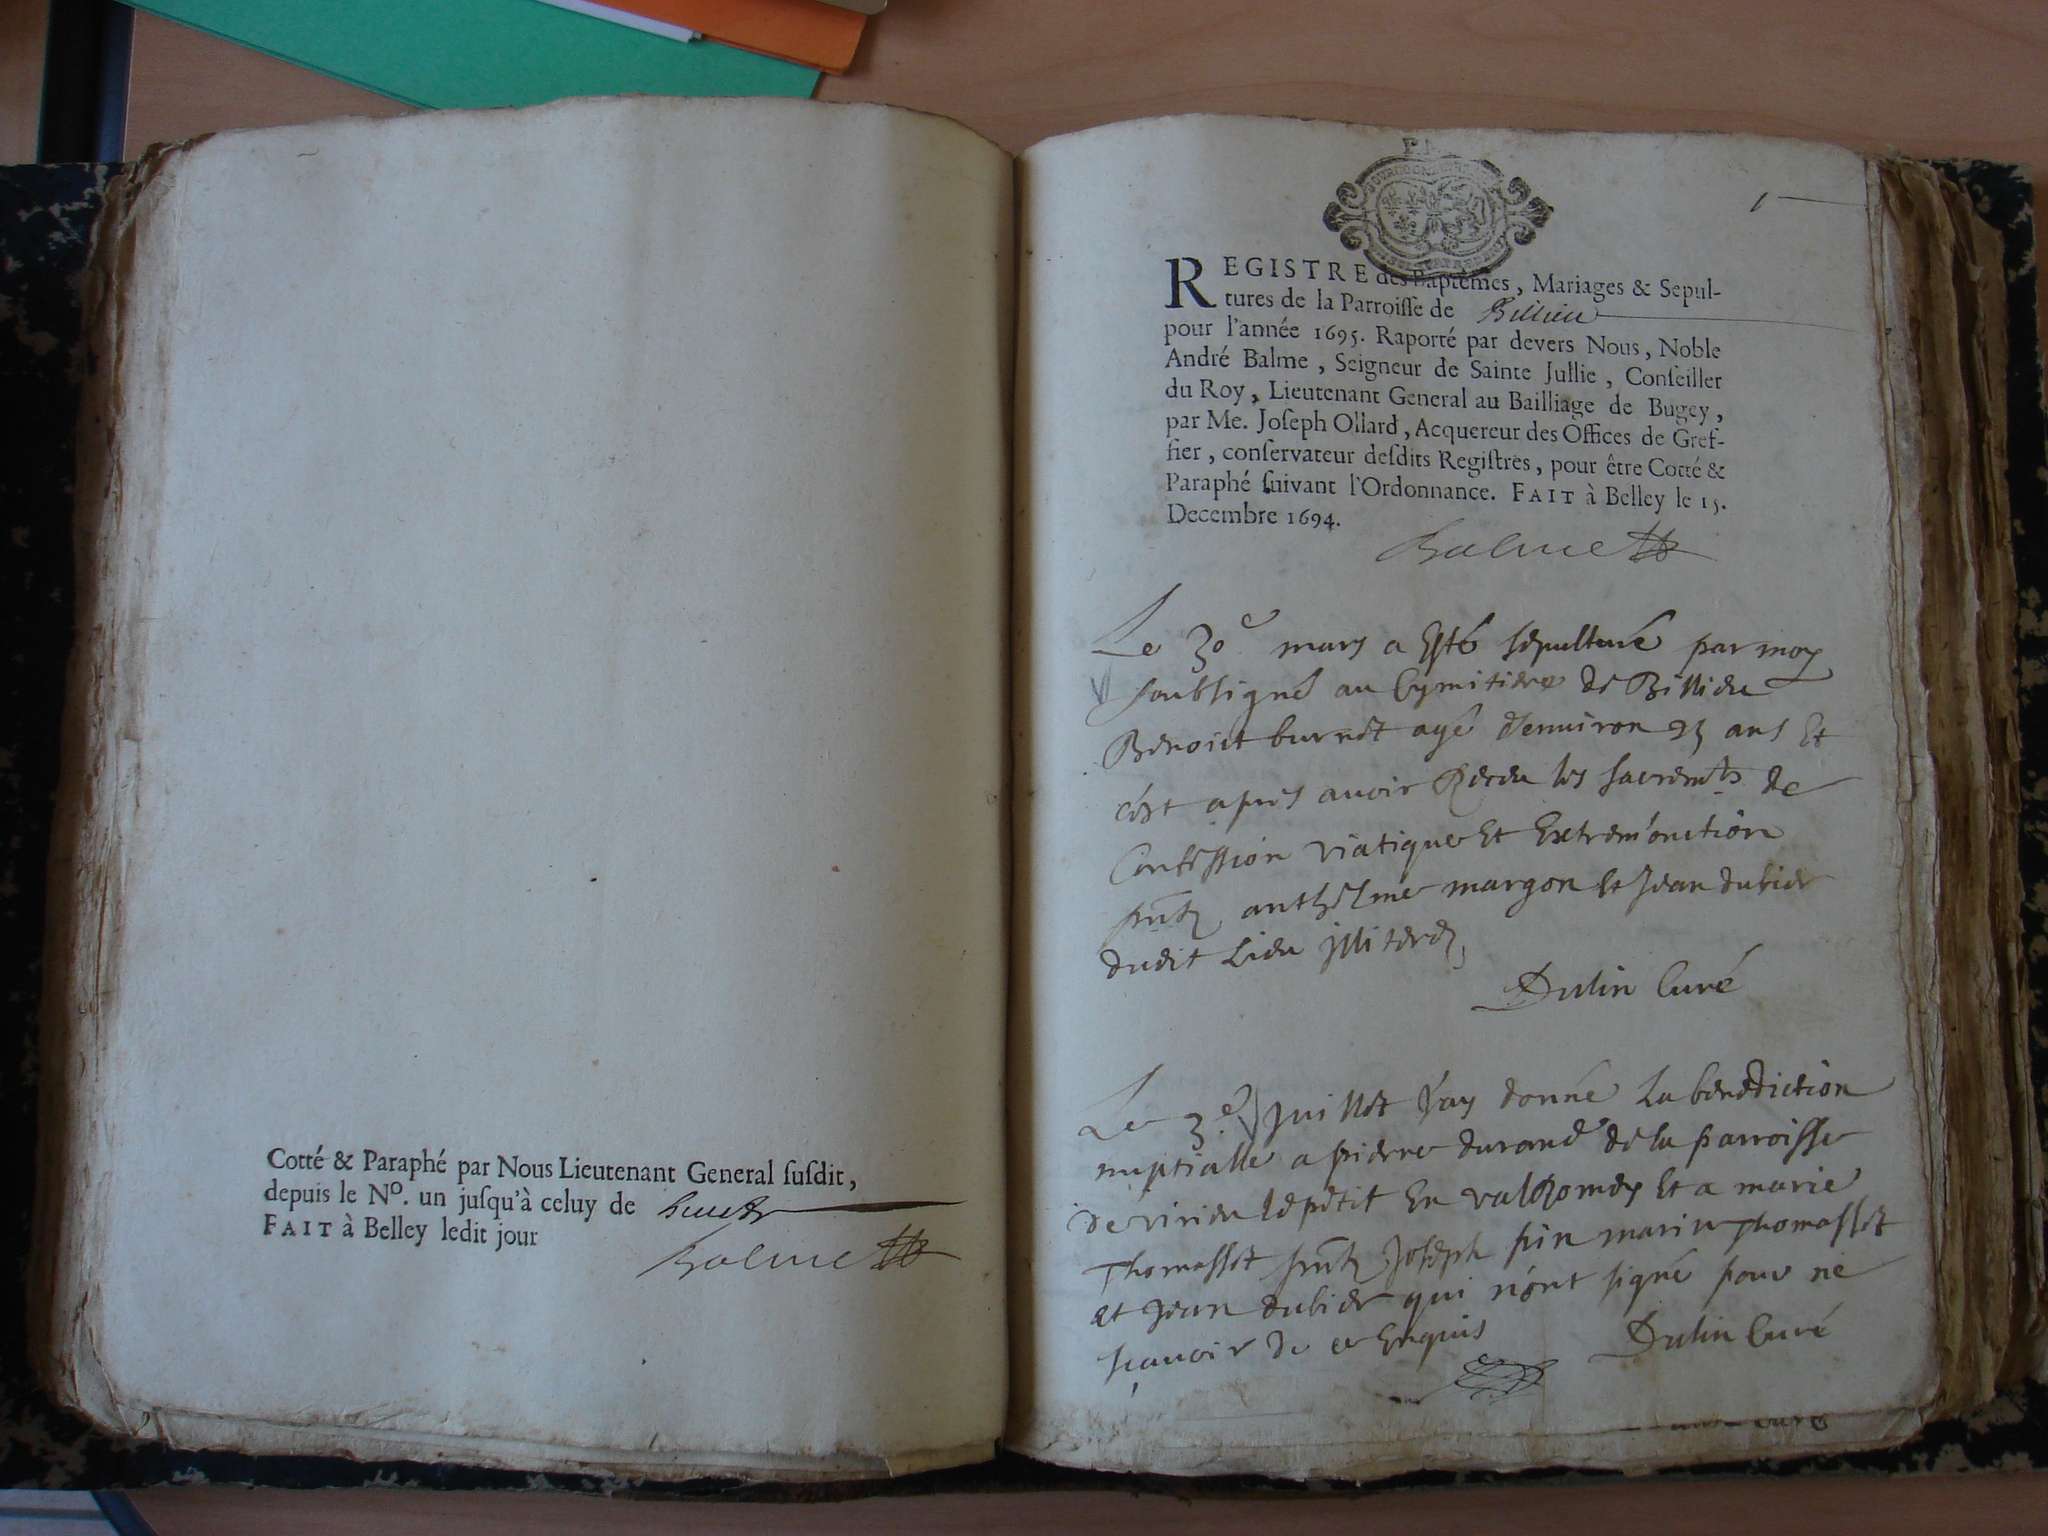 Cotté & Paraphé par Nous Lieutenant General ſuſdit,
depuis le Nº. un juſqu'à celuy de
FAIT à Belley ledit jour
Balme
1
REGISTRE des Baptêmes, Mariages & Sepul-
tures de la Parroiſſe de Billieu
pour l'année 1695. Raporté par devers Nous, Noble
André Balme, Seigneur de Sainte Jullie, Conſeiller
du Roy, Lieutenant General au Bailliage de Bugey,
par Me. Joſeph Ollard, Acquereur des Offices de Gref-
fier, conſervateur deſdits Regiſtres, pour être Cotté &
Paraphé ſuivant l'Ordonnance. FAIT à Belley le 15.
Decembre 1694.
Balme
Le 30e mars a Esté sepulturé par moy
soubsigné au Cymitiere de Billieu
Benoict burnet agé d'enuiron ans Et
c'est apres auoir Receu les sacremts de
Confession viatique Et Extremonction
pnts anthelme margon et Jean dubier
dudit Lieu jlliterez
Dulin Curé
Le 3e Juillet J'ay donné La benediction
nuptialle a pierre durand de la parroisse
de virieu le petit En valRomey Et a marie
Thomasset pnts Joseph pin marin Thomasset
et Jean dubier qui n'ont signé pour ne
sçauoir de ce Enquis
Dulin Curé
curé